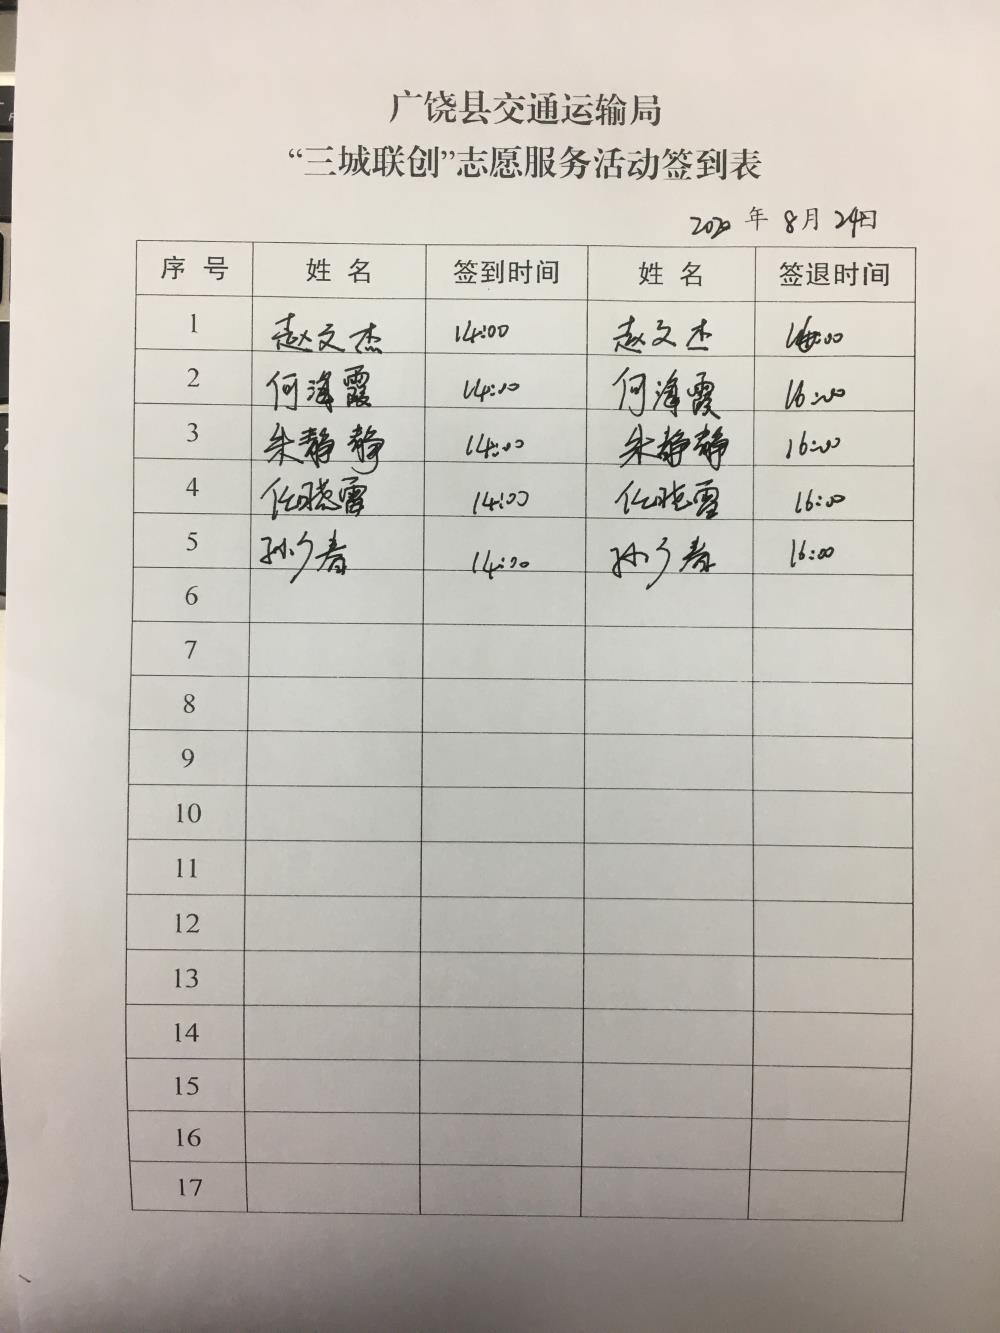 广饶县交通运输局
“三城联创”志愿服务活动签到表
2020 年 8月 24日
序 号 姓 名 签到时间 姓 名 签退时间
1 赵文杰 14:00 赵文杰 16:00
2 何海霞 14:00 何海霞 16:00
3 朱静静 14:00 朱静静 16:00
4 任晓雷 14:00 任晓雪 16:00
5 孙乡春 14:00 孙乡春 16:00
6
7
8
9
10
11
12
13
14
15
16
17